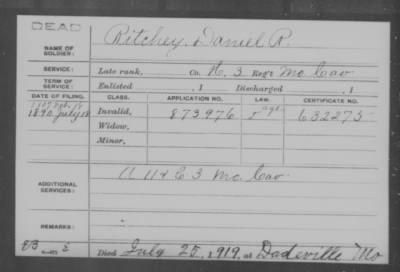 DEAD
NAME OF SOLDIER: Ritchey, Daniel R.
SERVICE: Late rank, Co. H, 3 Reg't Mo. Cav
TERM OF SERVICE: Enlisted , 1 Discharged , 1
DATE OF FILING. CLASS. APPLICATION NO. LAW. CERTIFICATE NO.
1890 July 18 Invalid, 873976 632275
Widow,
Minor,
ADDITIONAL SERVICES: 3 Mo. Cav
REMARKS:
Died July 25, 1919, at Dadeville Mo